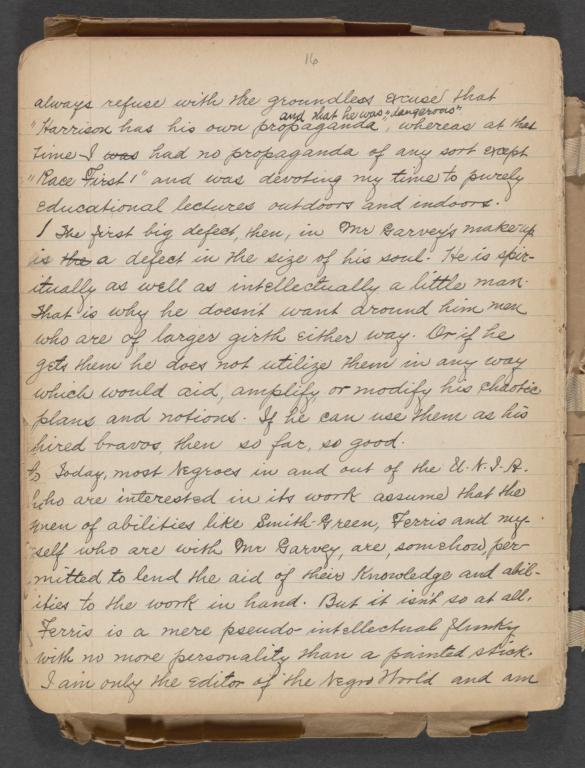 16
always refuse with the groundless excuse that
and that he was "dangerous"
"Harrison has his own propaganda", whereas at that
time I was had no propaganda of any sort except
"Race First!" and was devoting my time to purely
educational lectures outdoors and indoors.
The first big defect, then, in Mr Garvey's makeup
is the a defect in the size of his soul. He is spir-
itually as well as intellectually a little man.
That is why he doesn't want around him men
who are of larger girth either way. Or if he
gets them he does not utilize them in any way
which would aid, amplify or modify his chaotic
plans and notions. If he can use them as his
hired bravos, then so far, so good.
Today, most Negroes in and out of the U.N.I.A.
who are interested in its work assume that the
men of abilities like Smith-Green, Ferris and my-
self who are with Mr Garvey, are, somehow, per-
mitted to lend the aid of their knowledge and abil-
ities to the work in hand. But it isn't so at all.
Ferris is a mere pseudo-intellectual flunky
with no more personality than a painted stick.
I am only the editor of the Negro World and am